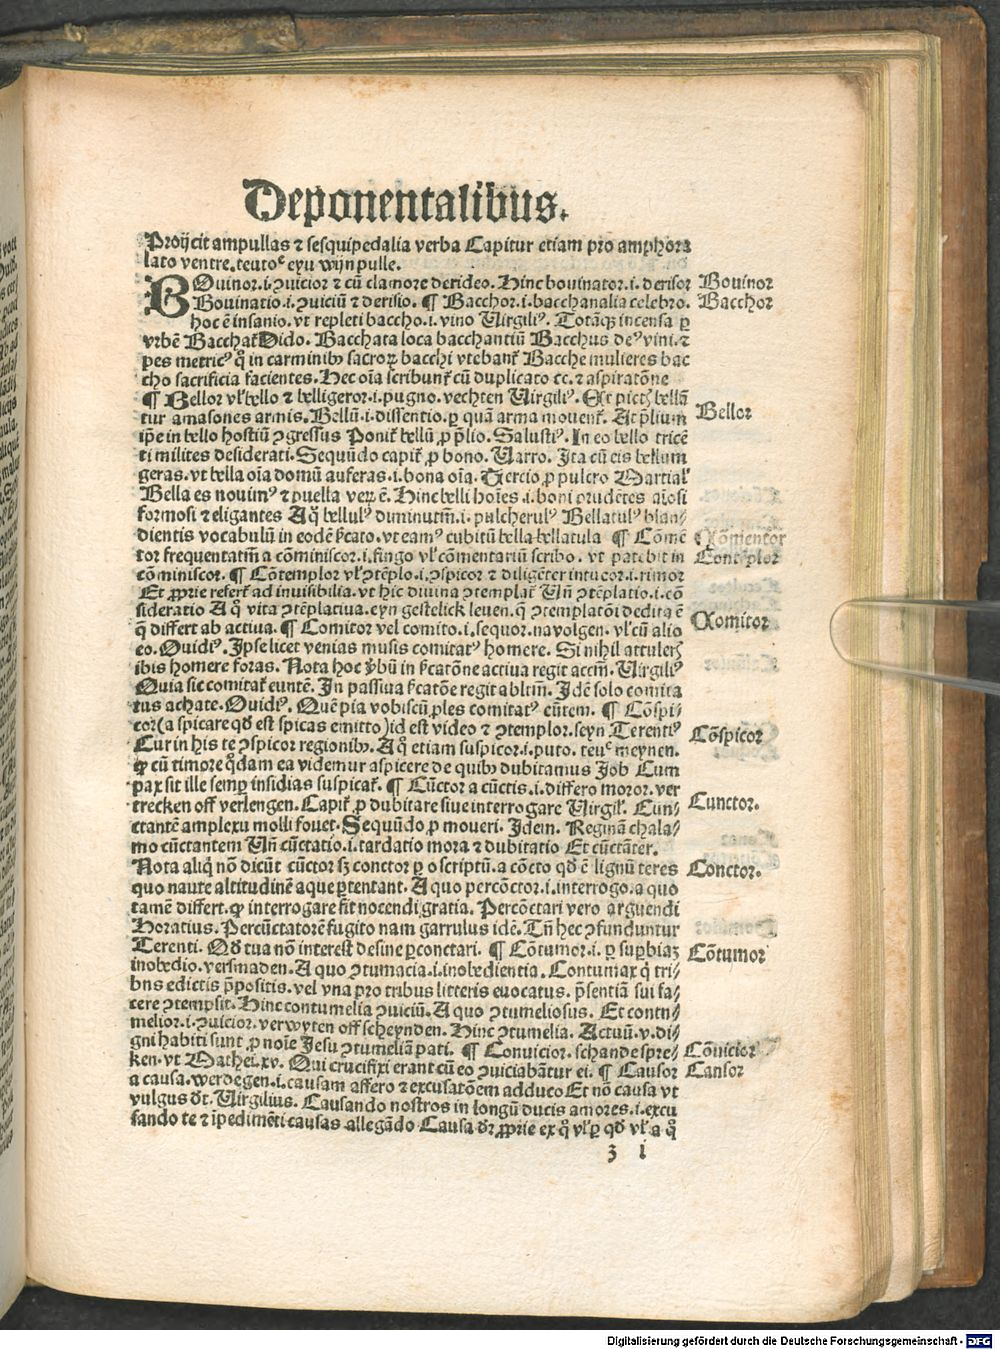 Deponentalibus.
Proijcit ampullas ⁊ sesquipedalia verba Capitur etiam pro amphora
lato ventre. teutoᶜ eyn wijn pulle.
BOuinor .i. ꝯuicior ⁊ cū clamore derideo. Hinc bouinator .i. derisor
Bouinor
Bouinatio .i. ꝯuiciū ⁊ derisio. ¶ Bacchor .i. bacchanalia celebro.
Bacchor
hoc ē insanio. vt repleti baccho .i. vino Virgiliꝰ. Totāqꝫ incensa ꝑ
vrbē Bacchat᷑ Dido. Bacchata loca bacchantiū Bacchus deꝰ vini. ⁊
pes metricꝰ q̊ in carminibꝰ sacroꝝ bacchi vtebant᷑ Bacche mulieres bac
cho sacrificia facientes. Hec oīa scribunt᷑ cū duplicato cc. ⁊ aspiratōne
¶ Bellor vl᷑ bello ⁊ belligeror .i. pugno. vechten Virgiliꝰ. Et pictꝭ bellā
tur amasones armis. Bellū .i. dissentio. ꝑ quā arma mouent᷑. At p̄lium
Bellor
ip̄e in bello hostiū ꝯgressus Ponit᷑ bellū ꝓ p̄lio. Salustiꝰ. In eo bello tricē
ti milites desiderati. Sequūdo capit᷑ ꝓ bono. Varro. Ita cū eis bellum
geras. vt bella oīa domū auferas .i. bona oīa. Tercio ꝓ pulcro Martial᷑
Bella es nouimꝰ ⁊ puella veꝝ ē. Hinc belli hoīes .i. boni prudētes
formosi ⁊ eligantes A q̊ bellulꝰ diminutiū .i. pulcherulꝰ Bellatulꝰ blan⸗
dientis vocabulū in eodē ẜcato. vt eamꝰ cubitū bella bellatula ¶ Cōmē
Cōmentor
tor frequentatiū a cōminiscor .i. fingo vl᷑ cōmentariū scribo. vt patebit in
Contēplor
cōminiscor. ¶ Cōtemplor vl᷑ ꝯtēplo .i. ꝯspicor ⁊ diligēter intueor .i. rimor
Et ꝓprie refert᷑ ad inuisibilia. vt hic diuina ꝯtemplat᷑ Vn̄ ꝯtēplatio .i. cō
sideratio A q̊ vita ꝯtēplatiua. eyn gestelick leuen. q̄ ꝯtemplatōni dedita ē
q̄ differt ab actiua. ¶ Comitor vel comito .i. sequor. na volgen. vl᷑ cū alio
Comitor
eo. Ouidiꝰ. Ipse licet venias musis comitatꝰ homere. Si nihil attulerꝭ
ibis homere foras. Nota hoc v̄bū in ẜcatōne actiua regit accm̄. Virgiliꝰ
Quia sic comitat᷑ euntē. In passiua ẜcatōne regit abltm̄. Idē solo comita
tus achate. Ouidiꝰ. Quē pia vobiscū ꝓles comitatꝰ eūtem. ¶ Cōspi⸗
cor (a spicare qd̄ est spicas emitto) id est video ⁊ ꝯtemplor. seyn Terentiꝰ
Cōspicor
Cur in his te ꝯspicor regionibꝰ. A q̊ etiam suspicor .i. puto. teuᶜ meynen.
qꝛ cū timore q̊dam ea videmur aspicere de quibꝰ dubitamus Job Cum
pax sit ille semꝑ insidias suspicat᷑. ¶ Cūctor a cūctis .i. differo moror. ver
trecken off verlengen. Capit᷑ ꝓ dubitare siue interrogare Virgil᷑. Cun⸗
Cunctor.
ctantē amplexu molli fouet. Sequūdo ꝓ moueri. Idem. Reginā chala⸗
mo cūctantem Vn̄ cūctatio .i. tardatio mora ⁊ dubitatio Et cūctāter.
Nota aliq̄ nō dicūt cūctor sꝫ conctor ꝑ o scriptū. a cōcto qd̄ ē lignū teres
Conctor.
quo naute altitudinē aque ꝑtentant. A quo percōctor .i. interrogo. a quo
tamē differt. qꝛ interrogare fit nocendi gratia. Percōctari vero arguendi
Horatius. Percūctatorē fugito nam garrulus idē. Tn̄ hec ꝯfunduntur
Terenti. Qd̄ tua nō interest desine ꝑconctari. ¶ Cōtumor .i. ꝑ suꝑbiaꝫ
Cōtumor
inobedio. versmaden. A quo ꝯtumacia .i. inobedientia. Contumax q̄ tri⸗
bus edictis p̄positis. vel vna pro tribus litteris euocatus. p̄sentiā sui fa⸗
cere ꝯtempsit. Hinc contumelia ꝯuiciū. A quo ꝯtumeliosus. Et contu⸗
melior .i. ꝯuicior. verwyten off scheynden. Hinc ꝯtumelia. Actuū .v. di⸗
gni habiti sunt ꝓ noīe Jesu ꝯtumeliā pati. ¶ Conuicior. schande spre⸗
Cōuicior
ken. vt Mathei .xv. Qui crucifixi erant cū eo ꝯuiciabātur ei. ¶ Causor
Causor
a causa. werdegen .i. causam affero ⁊ excusatōem adduco Et nō causa vt
vulgus d̄t. Virgilius. Causando nostros in longū ducis amores .i. excu
sando te ⁊ īpedimēti causas allegādo Causa d̄r ꝓprie ex q̊ vl᷑ ꝑ qd̄ vl᷑ a q̊
ʒ i
Digitalisierung gefördert durch die Deutsche Forschungsgemeinschaft - DFG